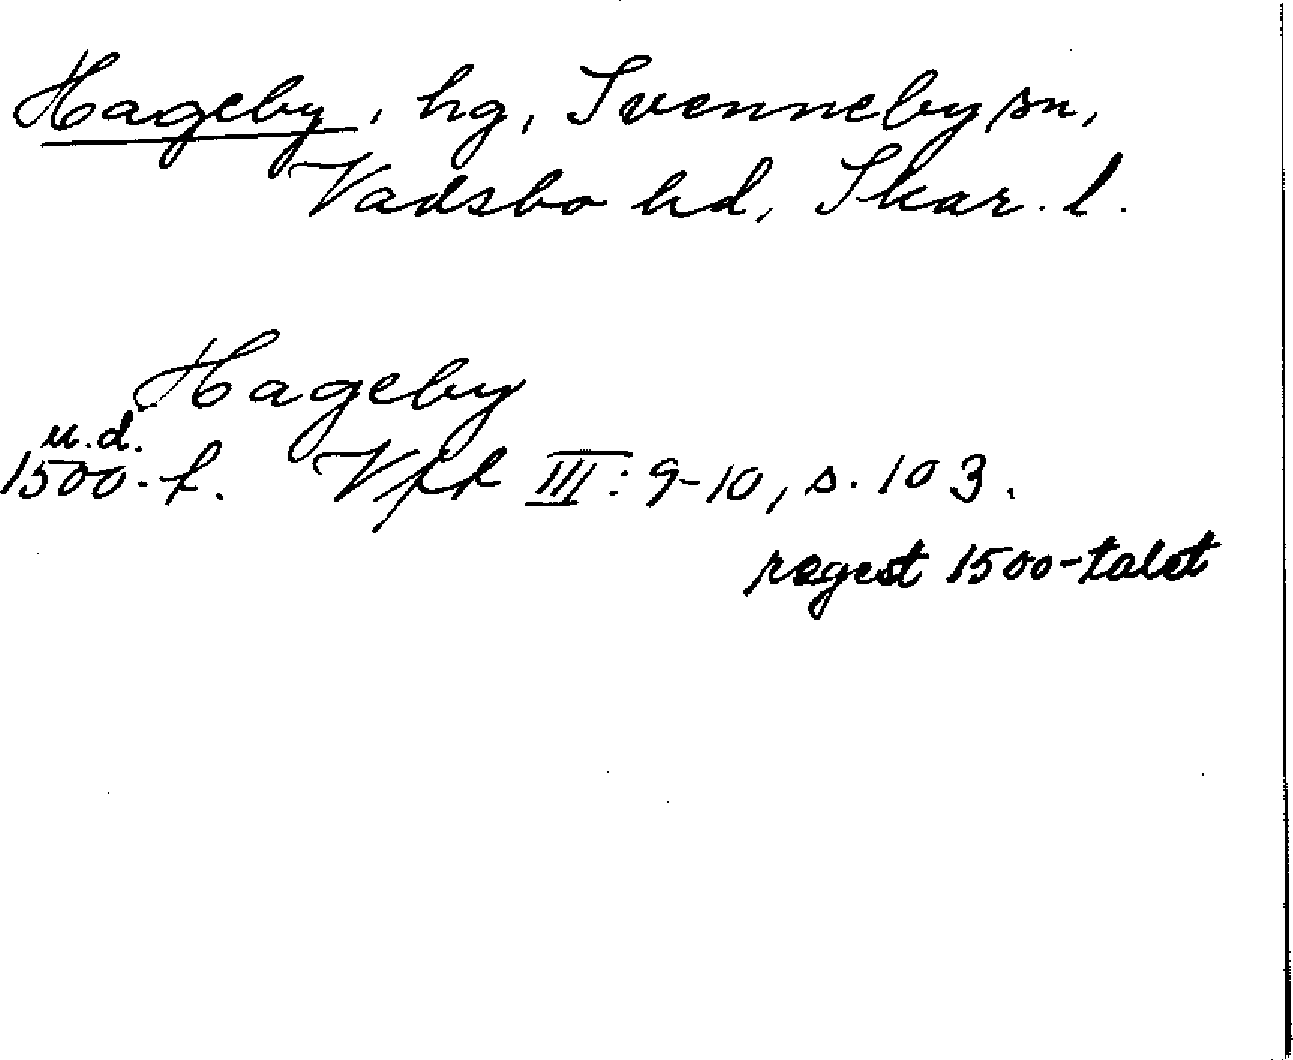 Hageby, hg, Svenneby sn,
Vadsbo hd, Skar. l.
Hageby
u.d.
1500-t. Vfk III: 9-10, s. 103.
regest 1500-talet